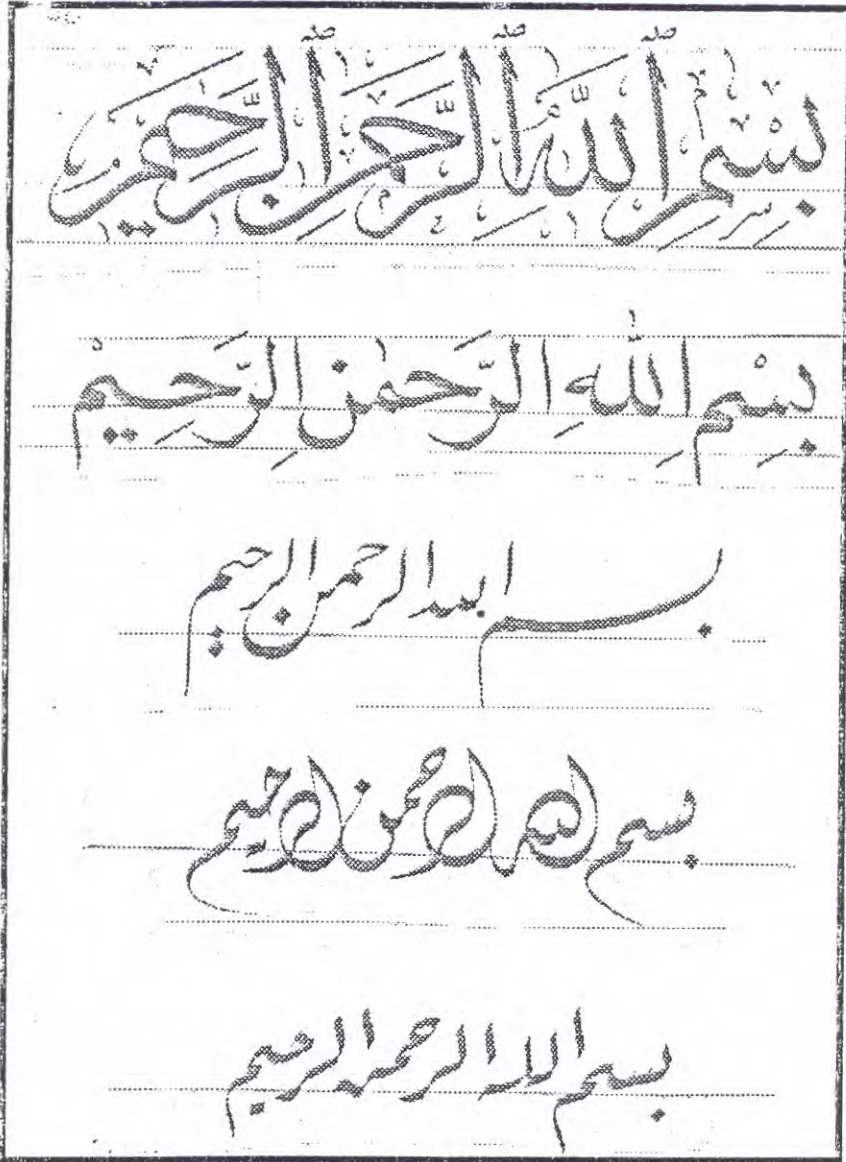 بِسْمِ اللَّهِ الرَّحْمٰنِ الرَّحِيمِ
بِسْمِ اللهِ الرَّحمٰنِ الرَّحِيمْ
بسم الله الرحمن الرحيم
بسم الله الرحمن الرحيم
بسم الله الرحمن الرحيم